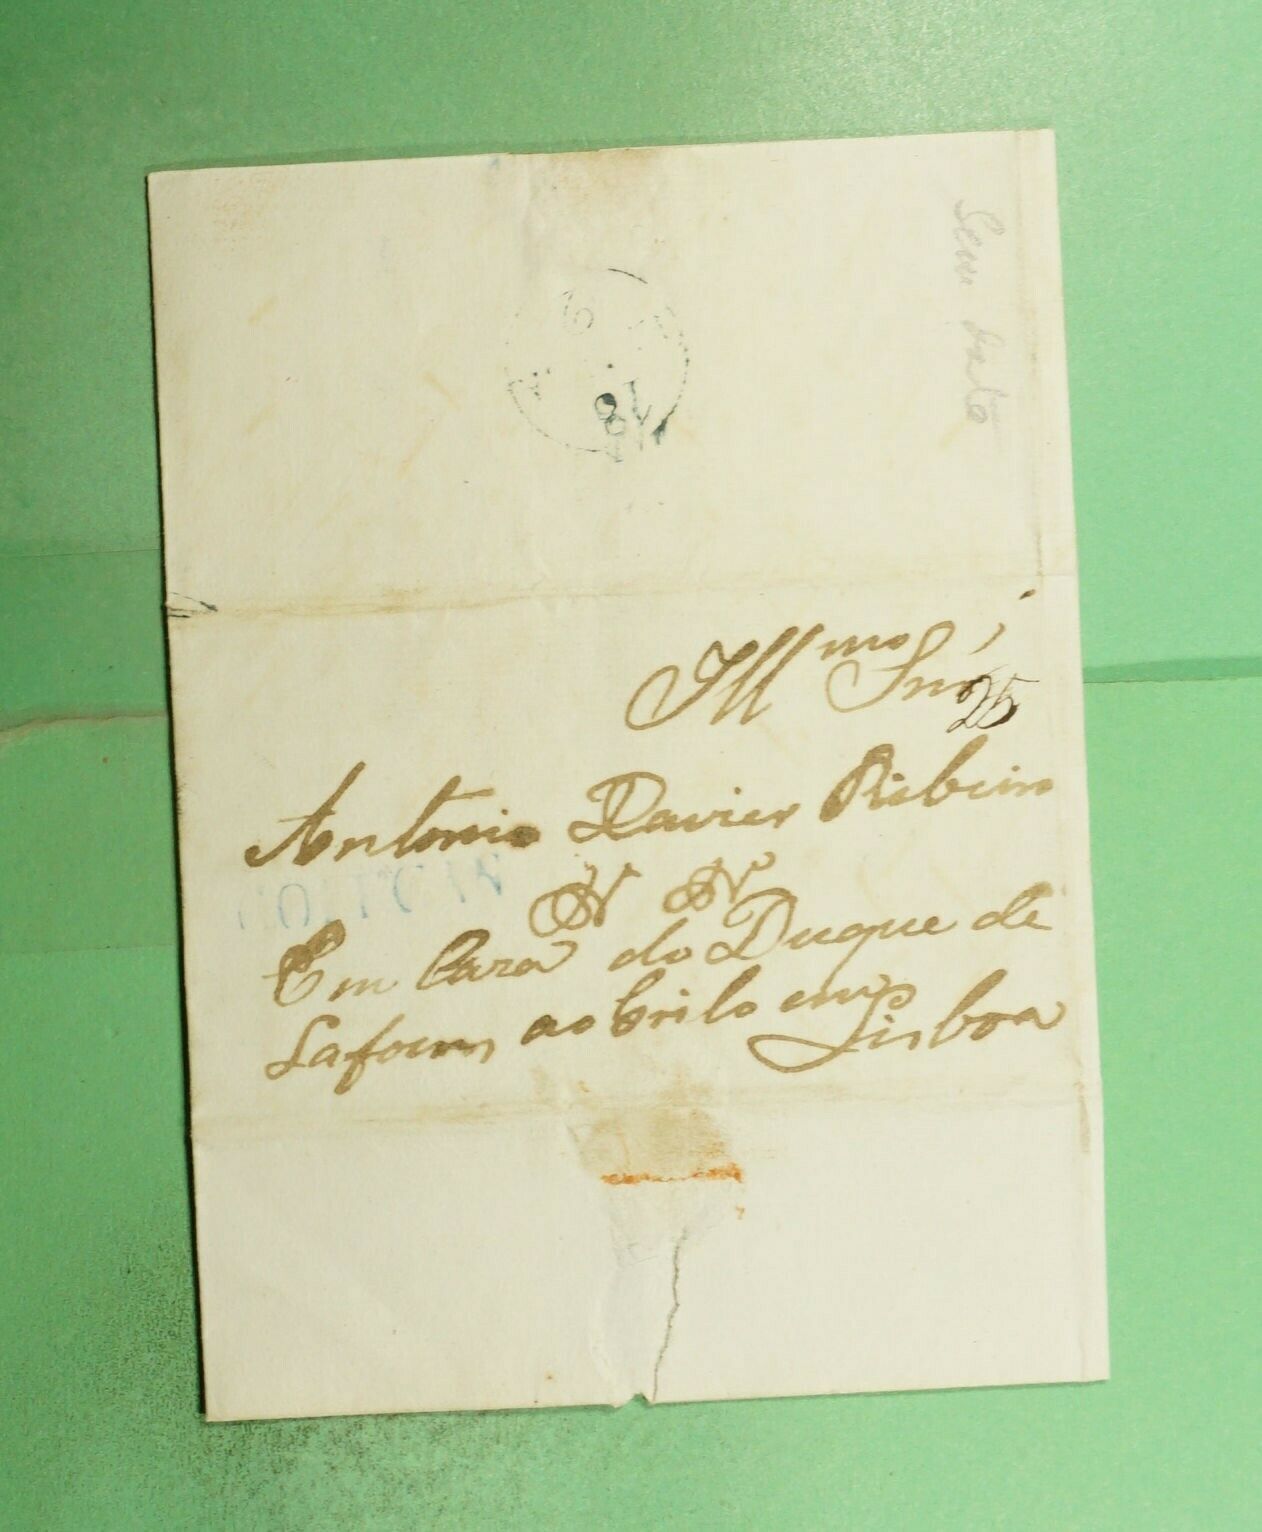 Sem data
Illmo Snr
25
Antonio Xavier Ribeiro
N N
Em Caza do Duque de
Lafoens ao Grilo em
Lisboa